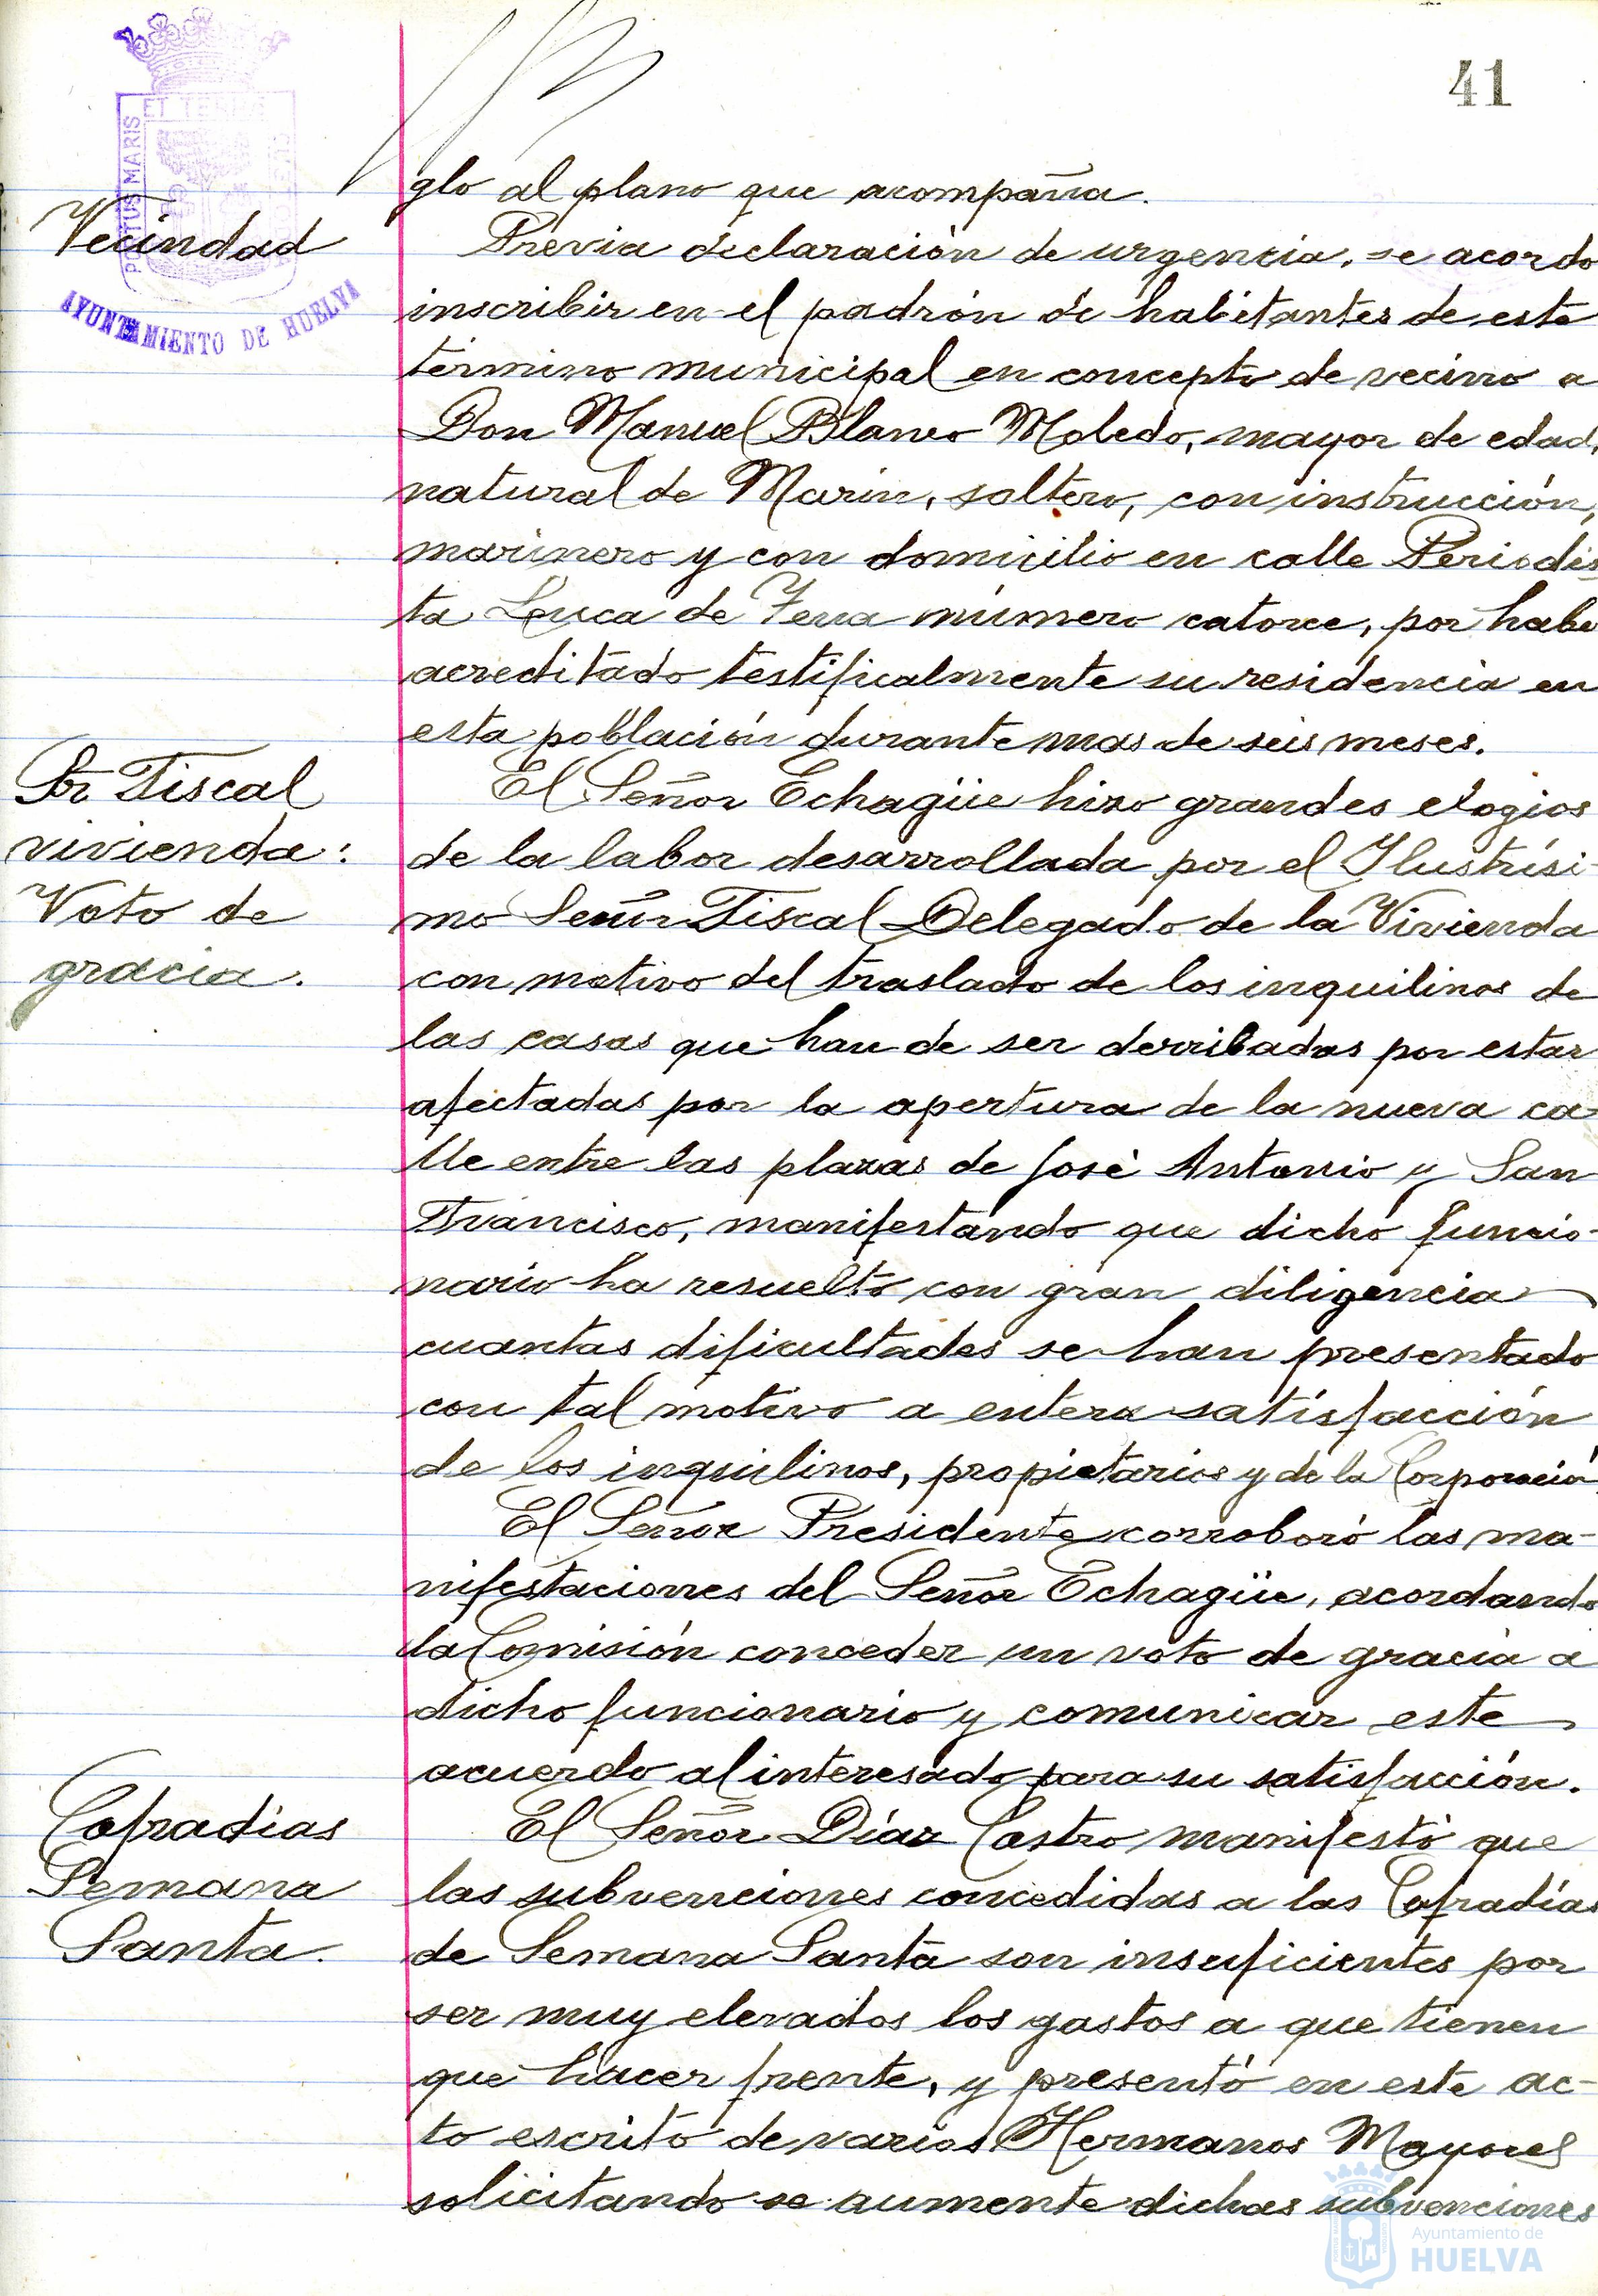 41
glo al plano que acompaña.
Vecindad
Previa declaración de urgencia, se acordo
inscribir en el padrón de habitantes de este
término municipal en concepto de vecino a
Don Manuel Blanco Moledo, mayor de edad,
natural de Marin, soltero, con instrucción,
marinero y con domicilio en calle Periodis
ta Luca de Tena número catorce, por habe
acreditado testificalmente su residencia en
esta población durante mas de seis meses.
Sr. Fiscal
vivienda:
Voto de
gracia.
El Señor Echagüe hizo grandes elogios
de la labor desarrollada por el Ilustrísi-
mo Señor Fiscal Delegado de la Vivienda
con motivo del traslado de los inquilinos de
las casas que han de ser derribadas por estar
afectadas por la apertura de la nueva ca-
lle entre las plazas de José Antonio y San
Francisco, manifestando que dicho funcio-
nario ha resuelto con gran diligencia
cuantas dificultades se han presentado
con tal motivo a entera satisfacción
de los inquilinos, propietarios y de la Corporación
El Señor Presidente corroboró las ma-
nifestaciones del Señor Echagüe, acordando
la Comisión conceder un voto de gracia a
dicho funcionario y comunicar este
acuerdo al interesado para su satisfacción.
Cofradias
Semana
Santa.
El Señor Díaz Castro manifestó que
las subvenciones concedidas a las Cofradías
de Semana Santa son insuficientes por
ser muy elevados los gastos a que tienen
que hacer frente, y presentó en este ac-
to escrito de varios Hermanos Mayores
solicitando se aumente dichas subvenciones
PORTUS MARIS ET TERRE
AYUNTAMIENTO DE HUELVA
Ayuntamiento de
HUELVA